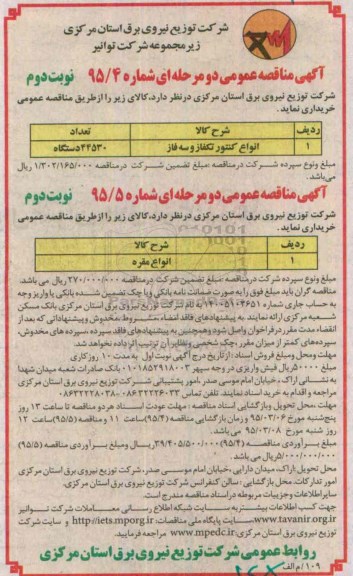 شرکت توزیع نیروی برق استان مرکزی
زیرمجموعه شرکت توانیر
آگهی مناقصه عمومی دو مرحله ای شماره ۹۵/۴ نوبت دوم
شرکت توزیع نیروی برق استان مرکزی درنظر دارد، کالای زیر را از طریق مناقصه عمومی
خریداری نماید.
ردیف شرح کالا تعداد
۱ انواع کنتور تکفاز و سه فاز ۴۴۵۳۰ دستگاه
مبلغ ونوع سپرده شرکت درمناقصه :مبلغ تضمین شرکت درمناقصه ۱/۳۰۲/۱۶۵/۰۰۰ ریال
می باشد.
آگهی مناقصه عمومی دو مرحله ای شماره ۹۵/۵ نوبت دوم
شرکت توزیع نیروی برق استان مرکزی درنظر دارد، کالای زیر را از طریق مناقصه عمومی
خریداری نماید.
ردیف شرح کالا
۱ انواع مقره
مبلغ ونوع سپرده شرکت درمناقصه :مبلغ تضمین شرکت درمناقصه ۲۷۰/۰۰۰/۰۰۰ ریال می باشد.
مناقصه گران باید مبلغ فوق را به صورت ضمانت نامه بانکی و یا چک تضمین شده بانکی یا واریز وجه
به حساب جاری شماره به نام شرکت توزیع نیروی برق استان مرکزی بانک مسکن
شعبه مرکزی ارائه نمایند. به پیشنهادهای فاقد امضاء ،مشروط ،مخدوش و پیشنهاداتی که بعد از
انقضاء مدت مقرر در فراخوان واصل شود وهمچنین به پیشنهادهای فاقد سپرده ،سپرده های مخدوش،
سپرده های کمتر از میزان مقرر ،چک شخصی ونظایر آن ترتیب اثر داده نخواهد شد.
مهلت ومحل ومبلغ فروش اسناد : از تاریخ درج آگهی نوبت اول به مدت ۱۰ روز کاری
مبلغ ۵۰۰۰۰۰ ریال فیش واریزی در وجه سپهر ۰۱۰۱۸۵۲۹۱۸۰۰۳ بانک صادرات شعبه میدان شهدا
به نشانی اراک ، خیابان امام موسی صدر ،امور پشتیبانی شرکت توزیع نیروی برق استان مرکزی
مراجعه و اقدام به خرید اسناد نمایند. تلفن تماس ۰۸۶۳۲۲۲۶۰۳۳ - ۰۸۶۳۲۲۲۸۰۳۸
مهلت ،محل تحویل وبازگشایی اسناد مناقصه : مهلت عودت اسناد هر دو مناقصه تا ساعت ۱۳ روز
پنج شنبه مورخ ۹۵/۰۳/۰۶ و زمان بازگشایی مناقصه (۹۵/۴) ساعت ۱۱ و مناقصه (۹۵/۵) ساعت ۱۲
روز شنبه مورخ ۹۵/۰۳/۰۸ می باشد.
مبلغ برآوردی مناقصه (۹۵/۴) ۳۹/۴۰۵/۵۰۰/۰۰۰ ریال ومبلغ برآوردی مناقصه (۹۵/۵)
۵/۰۰۰/۰۰۰/۰۰۰ ریال می باشد.
محل تحویل :اراک، میدان دارایی ،خیابان امام موسی صدر، شرکت توزیع نیروی برق استان مرکزی،
امور تدارکات. محل بازگشایی : سالن کنفرانس شرکت توزیع نیروی برق استان مرکزی.
سایر اطلاعات وجزییات مربوطه در اسناد مناقصه مندرج است.
جهت کسب اطلاعات بیشتر به سایت شبکه اطلاع رسانی معاملات شرکت توانیر
www.tavanir.org.ir سایت پایگاه ملی مناقصات: http://iets.mporg.ir و سایت شرکت
توزیع نیروی برق استان مرکزی: www.mpedc.ir مراجعه فرمایید.
روابط عمومی شرکت توزیع نیروی برق استان مرکزی
۱۰۹/ م الف